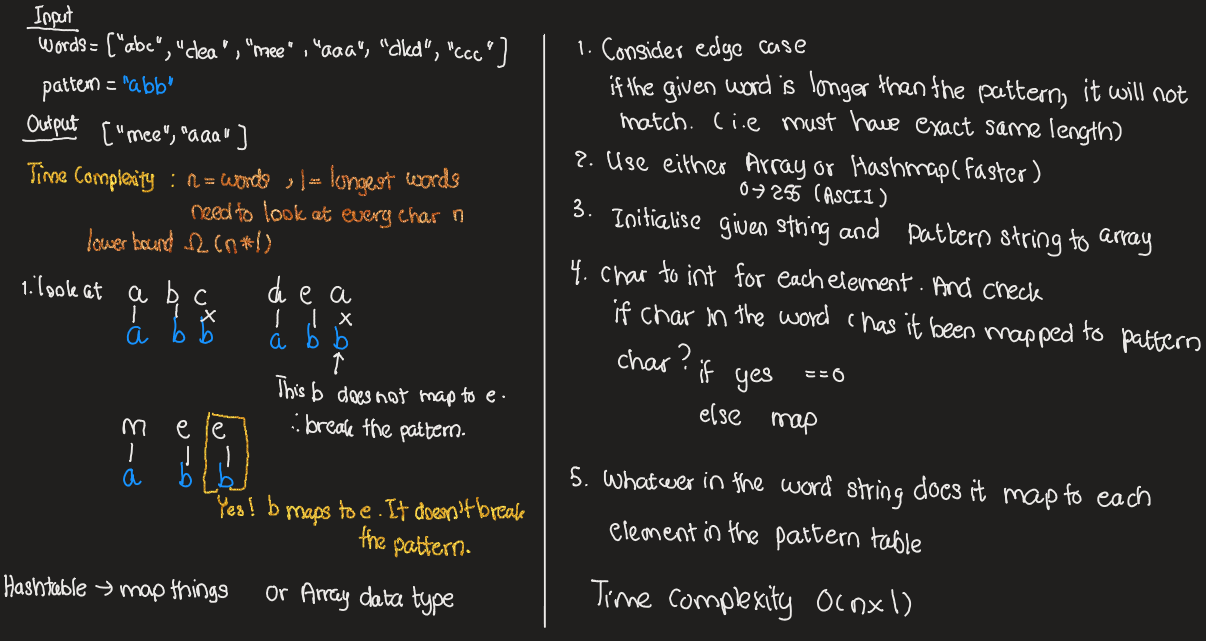 Input
words = ["abc", "dea", "mee", "aaa", "dkd", "ccc"]
pattern = "abb"
Output ["mee", "aaa"]
Time Complexity : n = words , l = longest words
need to look at every char n
lower bound Ω (n*l)
1. look at a b c d e a
x x
a b b a b b
This b does not map to e.
∴ break the pattern.
m e e
a b b
Yes! b maps to e. It doesn't break
the pattern.
Hashtable → map things or Array data type
1. Consider edge case
if the given word is longer than the pattern, it will not
match. (i.e must have exact same length)
2. Use either Array or Hashmap (faster)
0→255 (ASCII)
3. Initialise given string and pattern string to array
4. Char to int for each element. And check
if char in the word (has it been mapped to pattern
char? if yes ==0
else map
5. Whatever in the word string does it map to each
element in the pattern table
Time Complexity O(n×l)